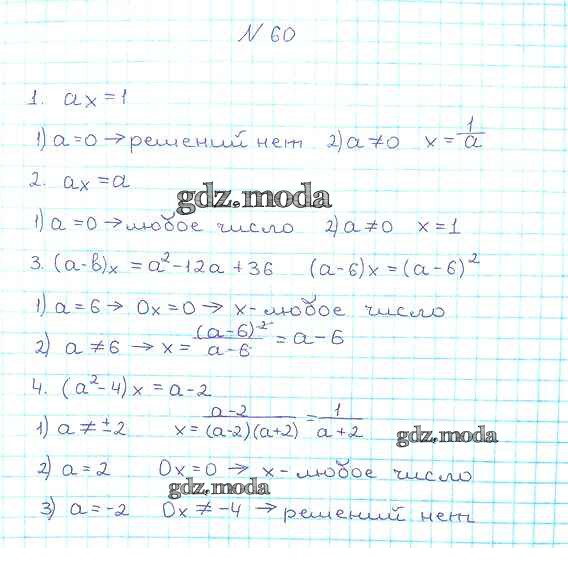 N 60
1. ax = 1
1) a = 0 → решений нет 2) a ≠ 0 x = 1/a
2. ax = a
gdz.moda
1) a = 0 → любое число 2) a ≠ 0 x = 1
3. (a-b)x = a² - 12a + 36 (a-6)x = (a-6)²
1) a = 6 → 0x = 0 → x - любое число
2) a ≠ 6 → x = (a-6)²/a-6 = a-6
4. (a²-4)x = a-2
1) a ≠ ±2 x = a-2/(a-2)(a+2) = 1/a+2
gdz.moda
2) a = 2 0x = 0 → x - любое число
gdz.moda
3) a = -2 0x ≠ -4 → решений нет